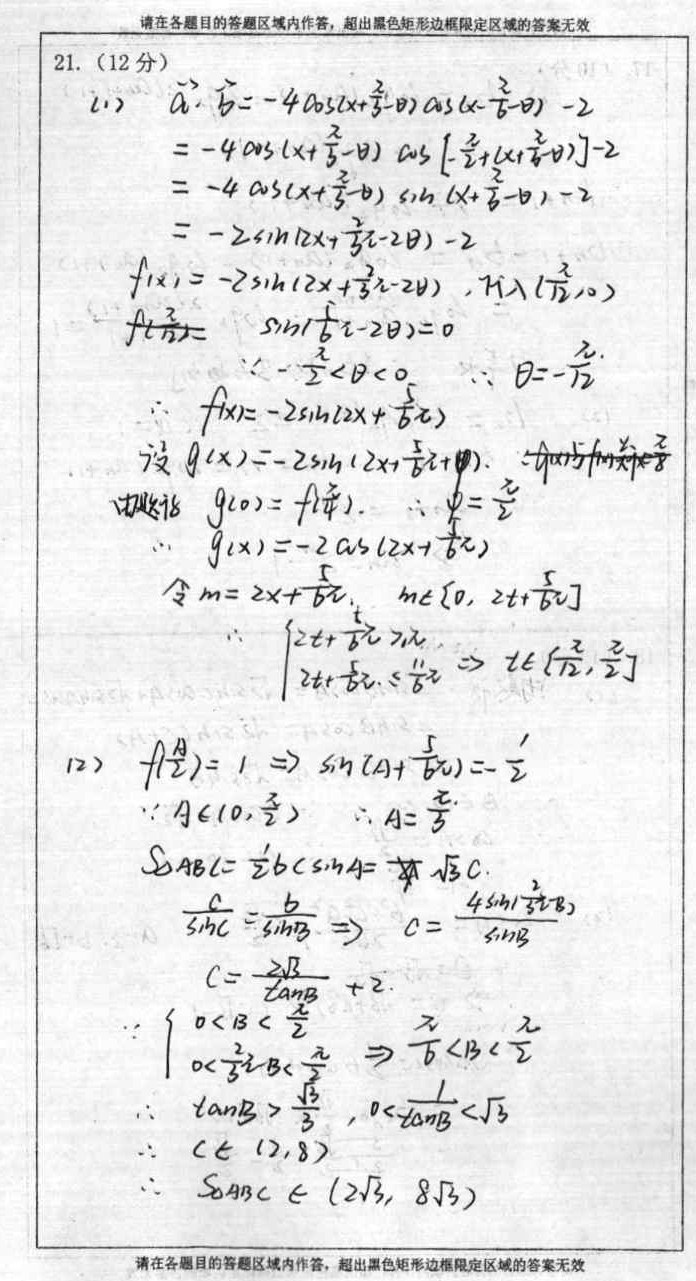 请在各题目的答题区域内作答，超出黑色矩形边框限定区域的答案无效
21.（12分）
(1) a⃗·b⃗=-4cos(x+π/3-θ)cos(x-π/6-θ)-2
=-4cos(x+π/3-θ) cos[-π/2+(x+π/3-θ)]-2
=-4cos(x+π/3-θ) sin(x+π/3-θ)-2
=-2sin(2x+2/3π-2θ)-2
f(x)=-2sin(2x+2/3π-2θ), 代入(π/12,0)
f(π/12)= sin(5/6π-2θ)=0
∵ -π/2<θ<0 ∴ θ=-π/12
∴ f(x)=-2sin(2x+5/6π)
设g(x)=-2sin(2x+5/6π+φ).
由题设 g(0)=f(π/4). ∴ φ=π/2
∴ g(x)=-2cos(2x+5/6π)
令m=2x+5/6π, m∈[0, 2t+5/6π]
∴ { 2t+5/6π≥π
2t+5/6π≤11/6π ⇒ t∈[π/12, π/2]
(2) f(A/2)=1 ⇒ sin(A+5/6π)=-1/2
∵ A∈(0,π/2) ∴ A=π/3
S△ABC=1/2bcsinA= √3C.
c/sinC=b/sinB ⇒ c=4sin(2/3π-B)/sinB
C=2√3/tanB+2.
∵ { 0<B<π/2
0<2/3π-B<π/2 ⇒ π/6<B<π/2
∴ tanB>√3/3, 0<1/tanB<√3
∴ C∈(2,8)
∴ S△ABC∈(2√3, 8√3)
请在各题目的答题区域内作答，超出黑色矩形边框限定区域的答案无效